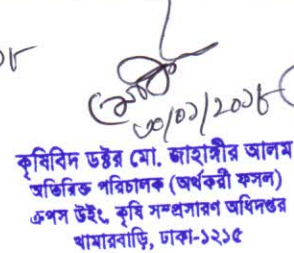 ৩০/০১/২০১৮
কৃষিবিদ ডক্টর মো. জাহাঙ্গীর আলম
অতিরিক্ত পরিচালক (অর্থকরী ফসল)
ক্রপস উইং, কৃষি সম্প্রসারণ অধিদপ্তর
খামারবাড়ি, ঢাকা-১২১৫